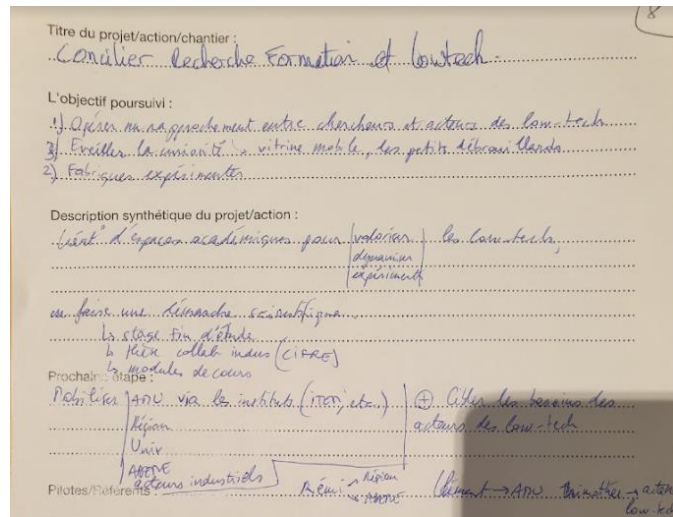 8
Titre du projet/action/chantier :
Concilier Recherche Formation et lowtech.
L'objectif poursuivi :
1) Opérer un rapprochement entre chercheurs et acteurs des low-tech
3) Eveiller la curiosité vitrine mobile, les petits débrouillards
2) Fabriques expérimentes
Description synthétique du projet/action :
Créat° d'espaces académiques pour valoriser les low-tech,
dynamiser
expérimenter
en faire une démarche scientifique
↳ stage fin d'étude
↳ thèse collab indus (CIFRE)
↳ modules de cours
Prochain étape :
Mobiliser AMU via les instituts (ITEM, etc.) ⊕ Cibler les besoins des
Région acteurs des low-tech
Univ
ADEME
acteurs industriels
Pilotes/Référents : Rémi → Région Clément → AMU Thimothée → acteurs
→ ADEME low-tech